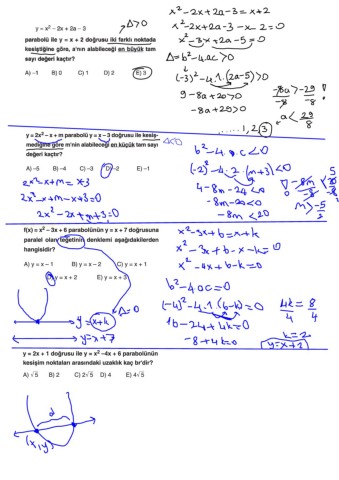 y = x² − 2x + 2a − 3 Δ>0
parabolü ile y = x + 2 doğrusu iki farklı noktada
kesiştiğine göre, a'nın alabileceği en büyük tam
sayı değeri kaçtır?
A) −1 B) 0 C) 1 D) 2 E) 3
x²−2x+2a−3=x+2
x²−2x+2a−3−x−2=0
x²−3x+2a−5=0
Δ=b²−4.ac>0
(−3)²−4.1.(2a−5)>0
9−8a+20>0
−8a+29>0
−8a/−8 > −29/−8 !
a < 29/8
.....1,2,3
y = 2x² − x + m parabolü y = x − 3 doğrusu ile kesiş-
mediğine göre m'nin alabileceği en küçük tam sayı
değeri kaçtır?
A) −5 B) −4 C) −3 D) −2 E) −1
Δ<0
2x²−x+m=x−3
2x²−x+m−x+3=0
2x²−2x+m+3=0
b²−4.a.c<0
(−2)²−4.2.(m+3)<0
4−8m−24<0
−8m−20<0
−8m<20
f(x) = x² − 3x + 6 parabolünün y = x + 7 doğrusuna
paralel olan teğetinin denklemi aşağıdakilerden
hangisidir?
A) y = x − 1 B) y = x − 2 C) y = x + 1
D) y = x + 2 E) y = x + 3
Δ=0
y=x+k
y=x+7
x²−3x+6=x+k
x²−3x+6−x−k=0
x²−4x+6−k=0
b²−4ac=0
(−4)²−4.1.(6−k)=0
16−24+4k=0
−8+4k=0
4k/4 = 8/4
k=2
y=x+2
y = 2x + 1 doğrusu ile y = x² −4x + 6 parabolünün
kesişim noktaları arasındaki uzaklık kaç br'dir?
A) √5 B) 2 C) 2√5 D) 4 E) 4√5
d
(x,y)